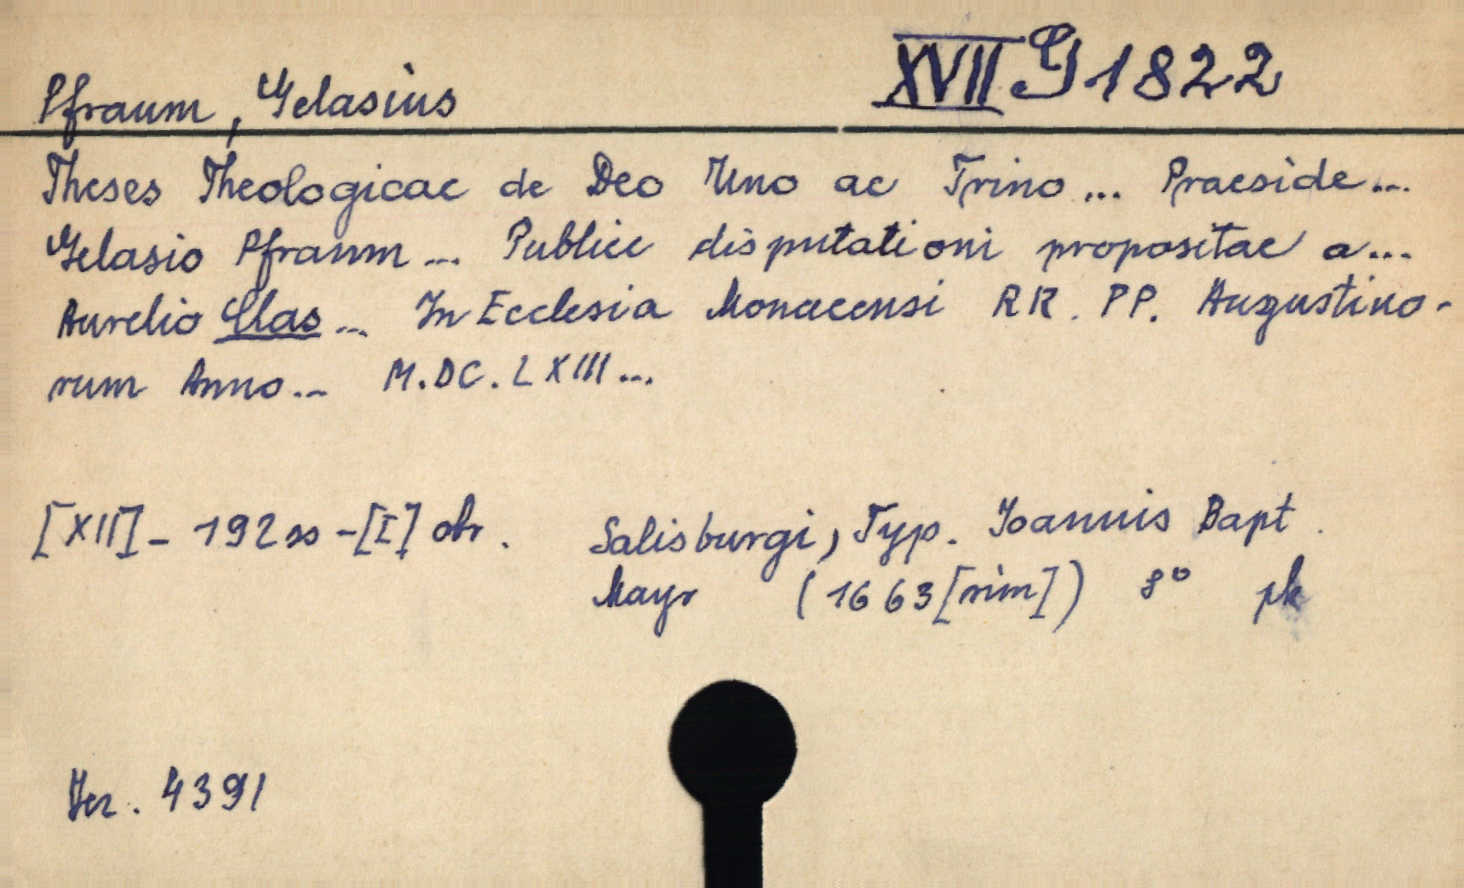 Pfraum, Gelasius
XVII G 1822
Theses Theologicae de Deo Uno ac Trino... Praeside...
Gelasio Pfraum... Publice disputationi propositae a...
Aurelio Clas... In Ecclesia Monacensi RR. PP. Augustino-
rum Anno... M.DC.LXIII...
[XII]- 192 ss -[I] obr. Salisburgi, Typ. Joannis Bapt.
Mayr (1663[rim]) 8° pk
4391